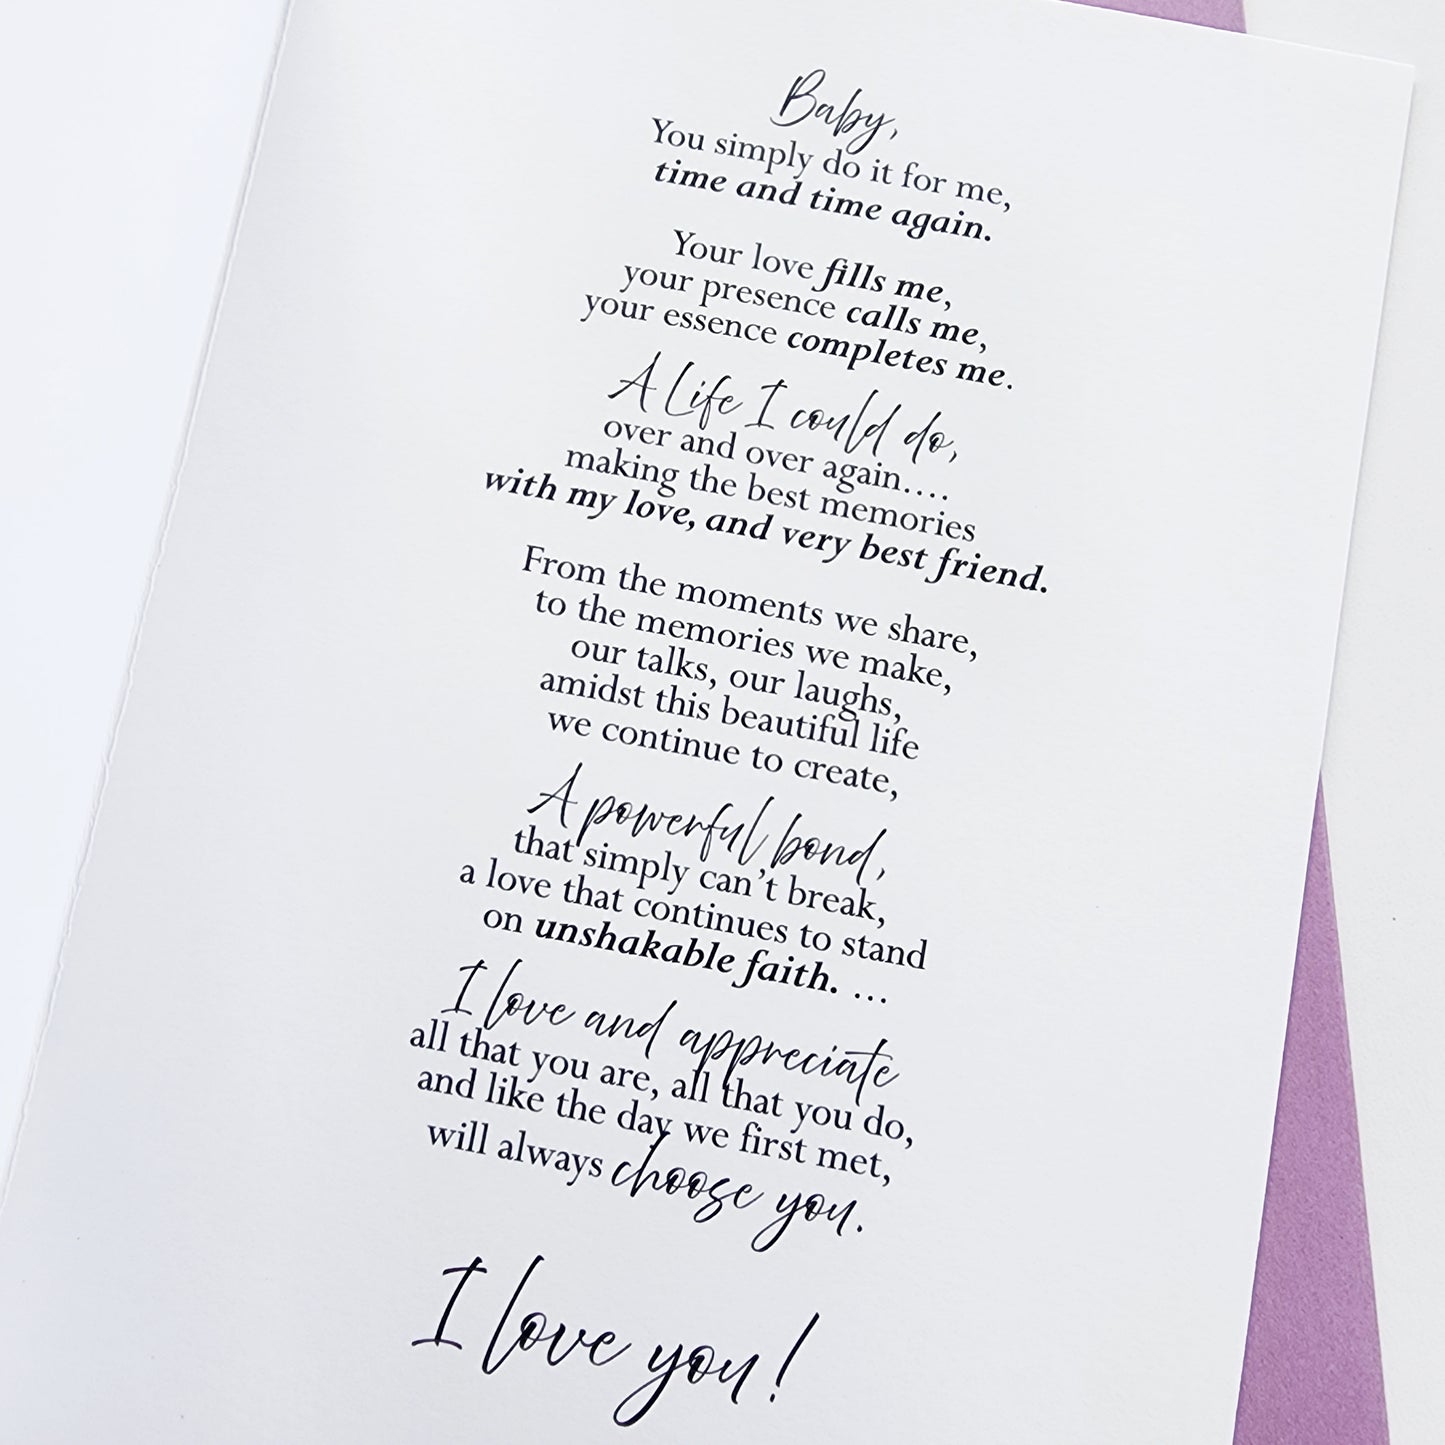 Baby,
You simply do it for me,
time and time again.
Your love fills me,
your presence calls me,
your essence completes me.
A life I could do,
over and over again....
making the best memories
with my love, and very best friend.
From the moments we share,
to the memories we make,
our talks, our laughs,
amidst this beautiful life
we continue to create,
A powerful bond,
that simply can't break,
a love that continues to stand
on unshakable faith. ...
I love and appreciate
all that you are, all that you do,
and like the day we first met,
will always choose you.
I love you!